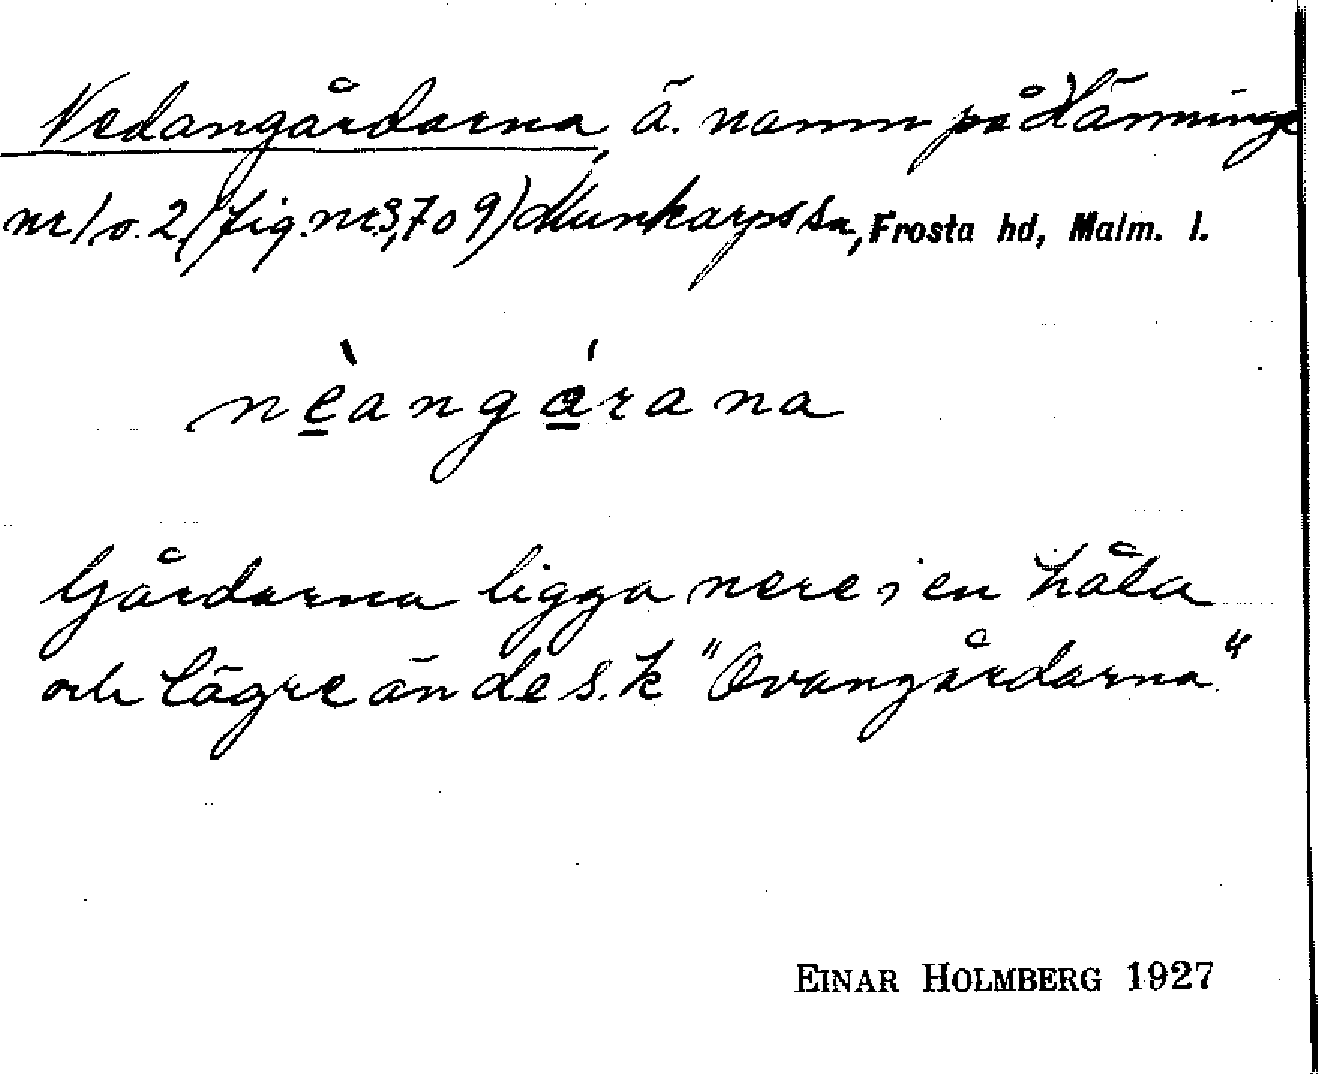 Nedangårdarna, ä. namn på Hänninge
nr 1 o. 2 (fig. nr 3, 7 o 9) Munkarps sn, Frosta hd, Malm. l.
nèangárana
Gårdarna ligga nere i en håla
och lägre än de s.k "Ovangårdarna"
EINAR HOLMBERG 1927